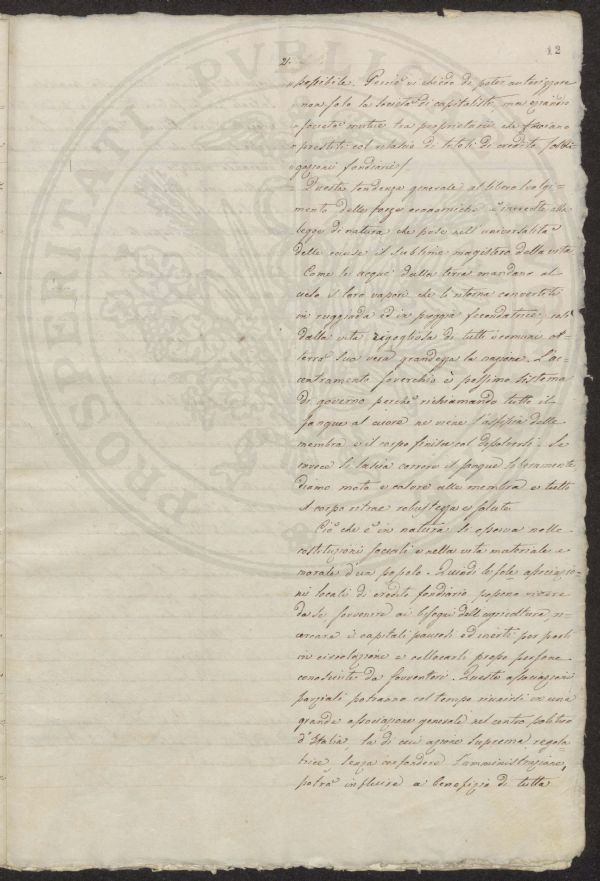 12
2.
possibile. Perciò vi chiedo di poter autorizzare
non solo le Società di capitalisti, ma eziandio
società mutue tra proprietarii che facciano
prestiti col rilascio di titoli di credito (obbli-
gazioni fondiarie)
Questa tendenza generale al libero svolgi-
mento delle forze economiche è inerente alla
legge di natura che pose nell'universalità
delle cause il sublime magistero della vita
Come le acque dalla terra mandano al
cielo i loro vapori che li ritorna convertiti
in ruggiada ed in pioggia fecondatrice, così
dalla vita rigogliosa di tutti i comuni at-
terrà sua vera grandezza la nazione. L'ac-
centramento soverchio è pessimo sistema
di governo perchè richiamando tutto il
sangue al cuore ne viene l'asfissia delle
membra e il corpo finisce col dissolversi. Se
invece si lascia correre il sangue liberamente,
diamo moto e calore alle membra e tutto
il corpo ritrae robustezza e salute
Ciò che è in natura si osserva nelle
costituzioni sociali e nella vita materiale e
morale d'un popolo. Quindi le sole associazio-
ni locali di credito fondiario possono vivere
da sè, sovvenire ai bisogni dell'agricoltura, ri-
cercare i capitali paurosi ed inerti per porli
in circolazione e collocarli presso persone
conosciute da sovventori. Queste associazioni
parziali potranno col tempo riunirsi in una
grande associazione generale nel centro politico
d'Italia, la di cui azione suprema regola-
trice, senza confondere l'amministrazione,
potrà influire a benefizio di tutta
PROSPERITATI PVBLIC